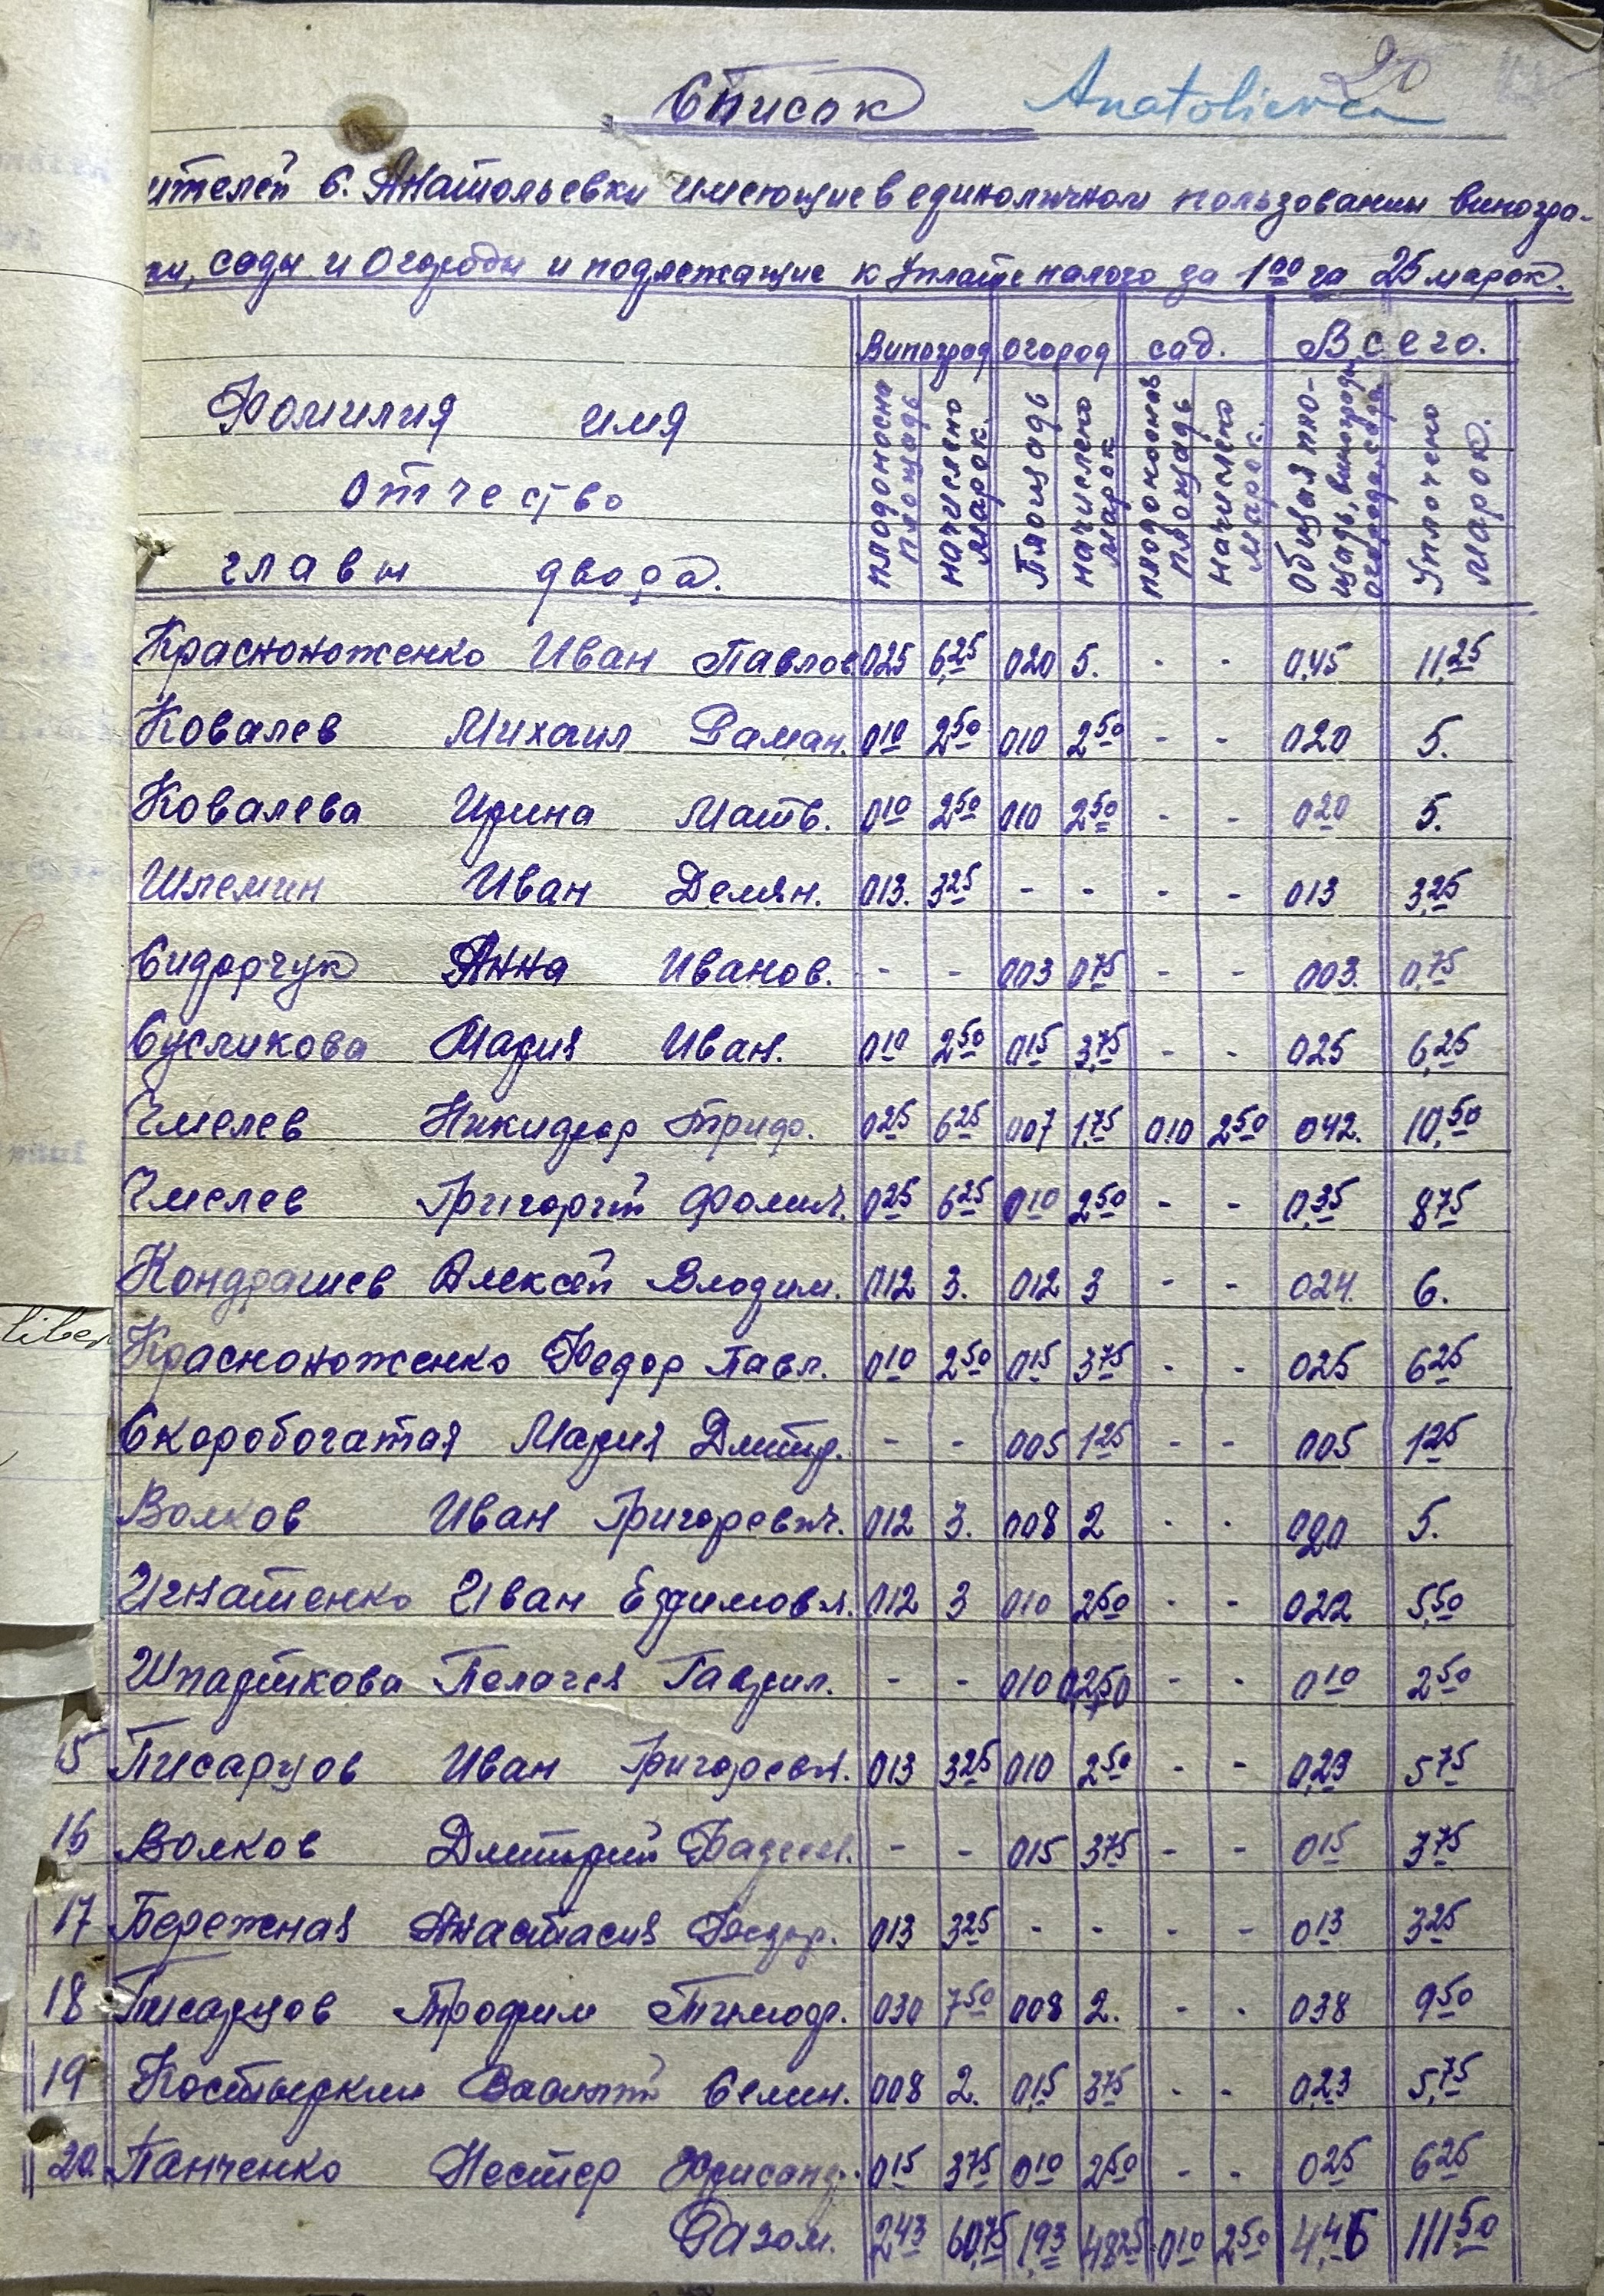 20
Список Anatolievca
ителей с. Анатольевки имеющие в единоличном пользовании виногра-
ки, сады и огороды и подлежащие к уплате налога за 1 00 га 25 марок.
Виноград огород сад. Всего.
Фамилия имя
отчество
главы двора.
плодоносна площадь
начислено марок.
Площадь
начислено марок
плодоносная площадь
начислено марок.
Общая площадь, виноградн огорода, сада.
Уплочено марок.
Красноноженко Иван Павлов 025 6,25 020 5. - - 0,45 11,25
Ковалев Михаил Раман. 010 2 50 010 2 50 - - 020 5.
Ковалева Ирина Матв. 010 2 50 010 2 50 - - 020 5.
Шлемин Иван Демян. 013. 3 25 - - - - 013 3,25
Сидорчук Анна Иванов. - - 003 075 - - 003. 0,75
Сусликова Мария Иван. 010 2 50 015 3,75 - - 025 6,25
Чмелев Никидфор 025 6 25 007 1,75 010 2 50 042. 10,50
Чмелев Григорий Фомич. 025 6 25 010 2 50 - - 0,35 8 75
Кондрашев Алексей Владим. 012 3. 012 3 - - 024. 6.
Красноноженко Федор Павл. 010 2 50 015 3 75 - - 025 6 25
Скоробогатая Мария Дмитр. - - 005 1 25 - - 005 1 25
Волков Иван Григоревич. 012 3. 008 2 - - 020 5.
Игнатенко Иван Ефимович. 012 3 010 2 50 - - 022 5,50
Шпарткова Пелагея Гаврил. - - 010 02,50 - - 010 2 50
15 Писарцов Иван Григоревич. 013 3 25 010 2 50 - - 0,23 5 75
16 Волков Дмитрий Фадеев. - - 015 3 75 - - 015 3 75
17 Бережная Анастасия Федор. 013 3 25 - - - - 013 3 25
18 Писарцов Трофим Тимофр. 030 7 50 008 2. - - 038 9 50
19 Костыркин Василий Семин. 008 2. 0,15 3 75 - - 0,23 5,75
20. Панченко Нестер Хрисанф. 015 3 75 010 2 50 - - 025 6 25
Разом. 2 43 60,75 1,93 48 25 010 2 50 4,46 111,50
liber